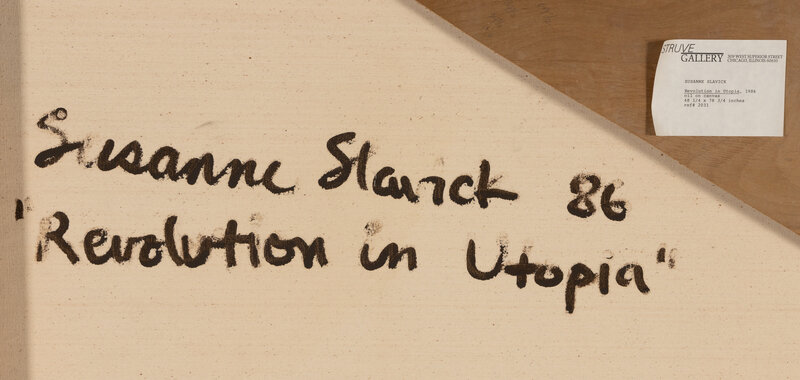 Susanne Slavick 86
"Revolution in Utopia"
STRUVE
GALLERY
309 WEST SUPERIOR STREET
CHICAGO, ILLINOIS 60610
SUSANNE SLAVICK
Revolution in Utopia, 1986
oil on canvas
68 1/4 x 78 3/4 inches
ref# 2031